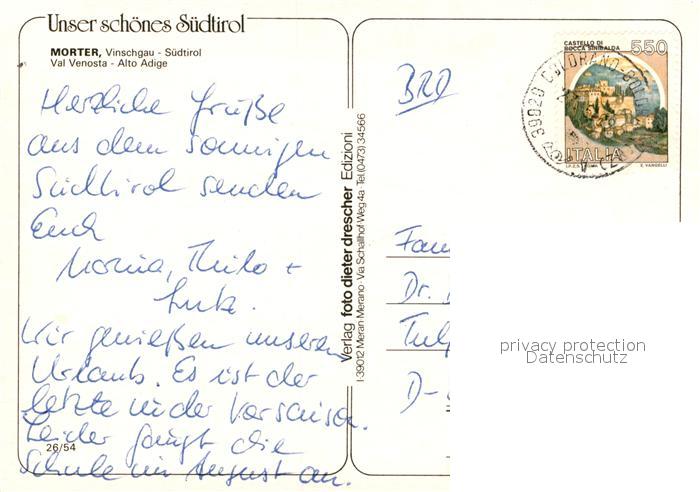 Unser schönes Südtirol
MORTER, Vinschgau - Südtirol
Val Venosta - Alto Adige
Herzliche Grüße
aus dem sonnigen
Südtirol senden
Euch
Monia, Thilo +
Lutz.
Wir genießen unseren
Urlaub. Es ist der
letzte in der Vorsaison.
Leider fängt die
Schule im August an.
26/54
Verlag foto dieter drescher Edizioni
I-39012 Meran-Merano · Via Schallhof Weg 4a Tel (0473) 34566
CASTELLO DI
ROCCA SINIBALDA
550
ITALIA
E. VANGELLI
39020
BRD
Fam
Dr.
Tulp
D-
privacy protection
Datenschutz